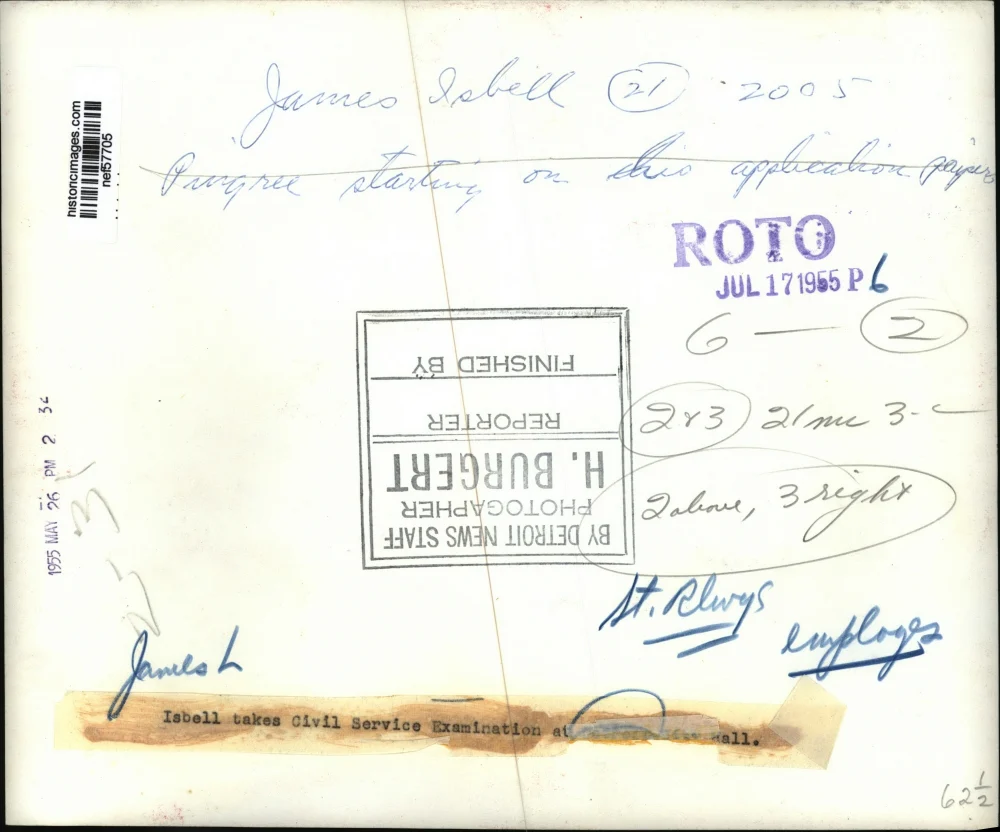 James Isbell (21) 2005
Pingree starting on this application papers
historicimages.com
nef57705
ROTO
JUL 17 1955 P 6
6 — 2
FINISHED BY
REPORTER
H. BURGERT
PHOTOGAPHER
BY DETROIT NEWS STAFF
2x3 21 mc 3-c
2 above, 3 right
1955 MAY 26 PM 2 34
St. Rlwys
employes
James L
Isbell takes Civil Service Examination at
Hall.
62 1/2